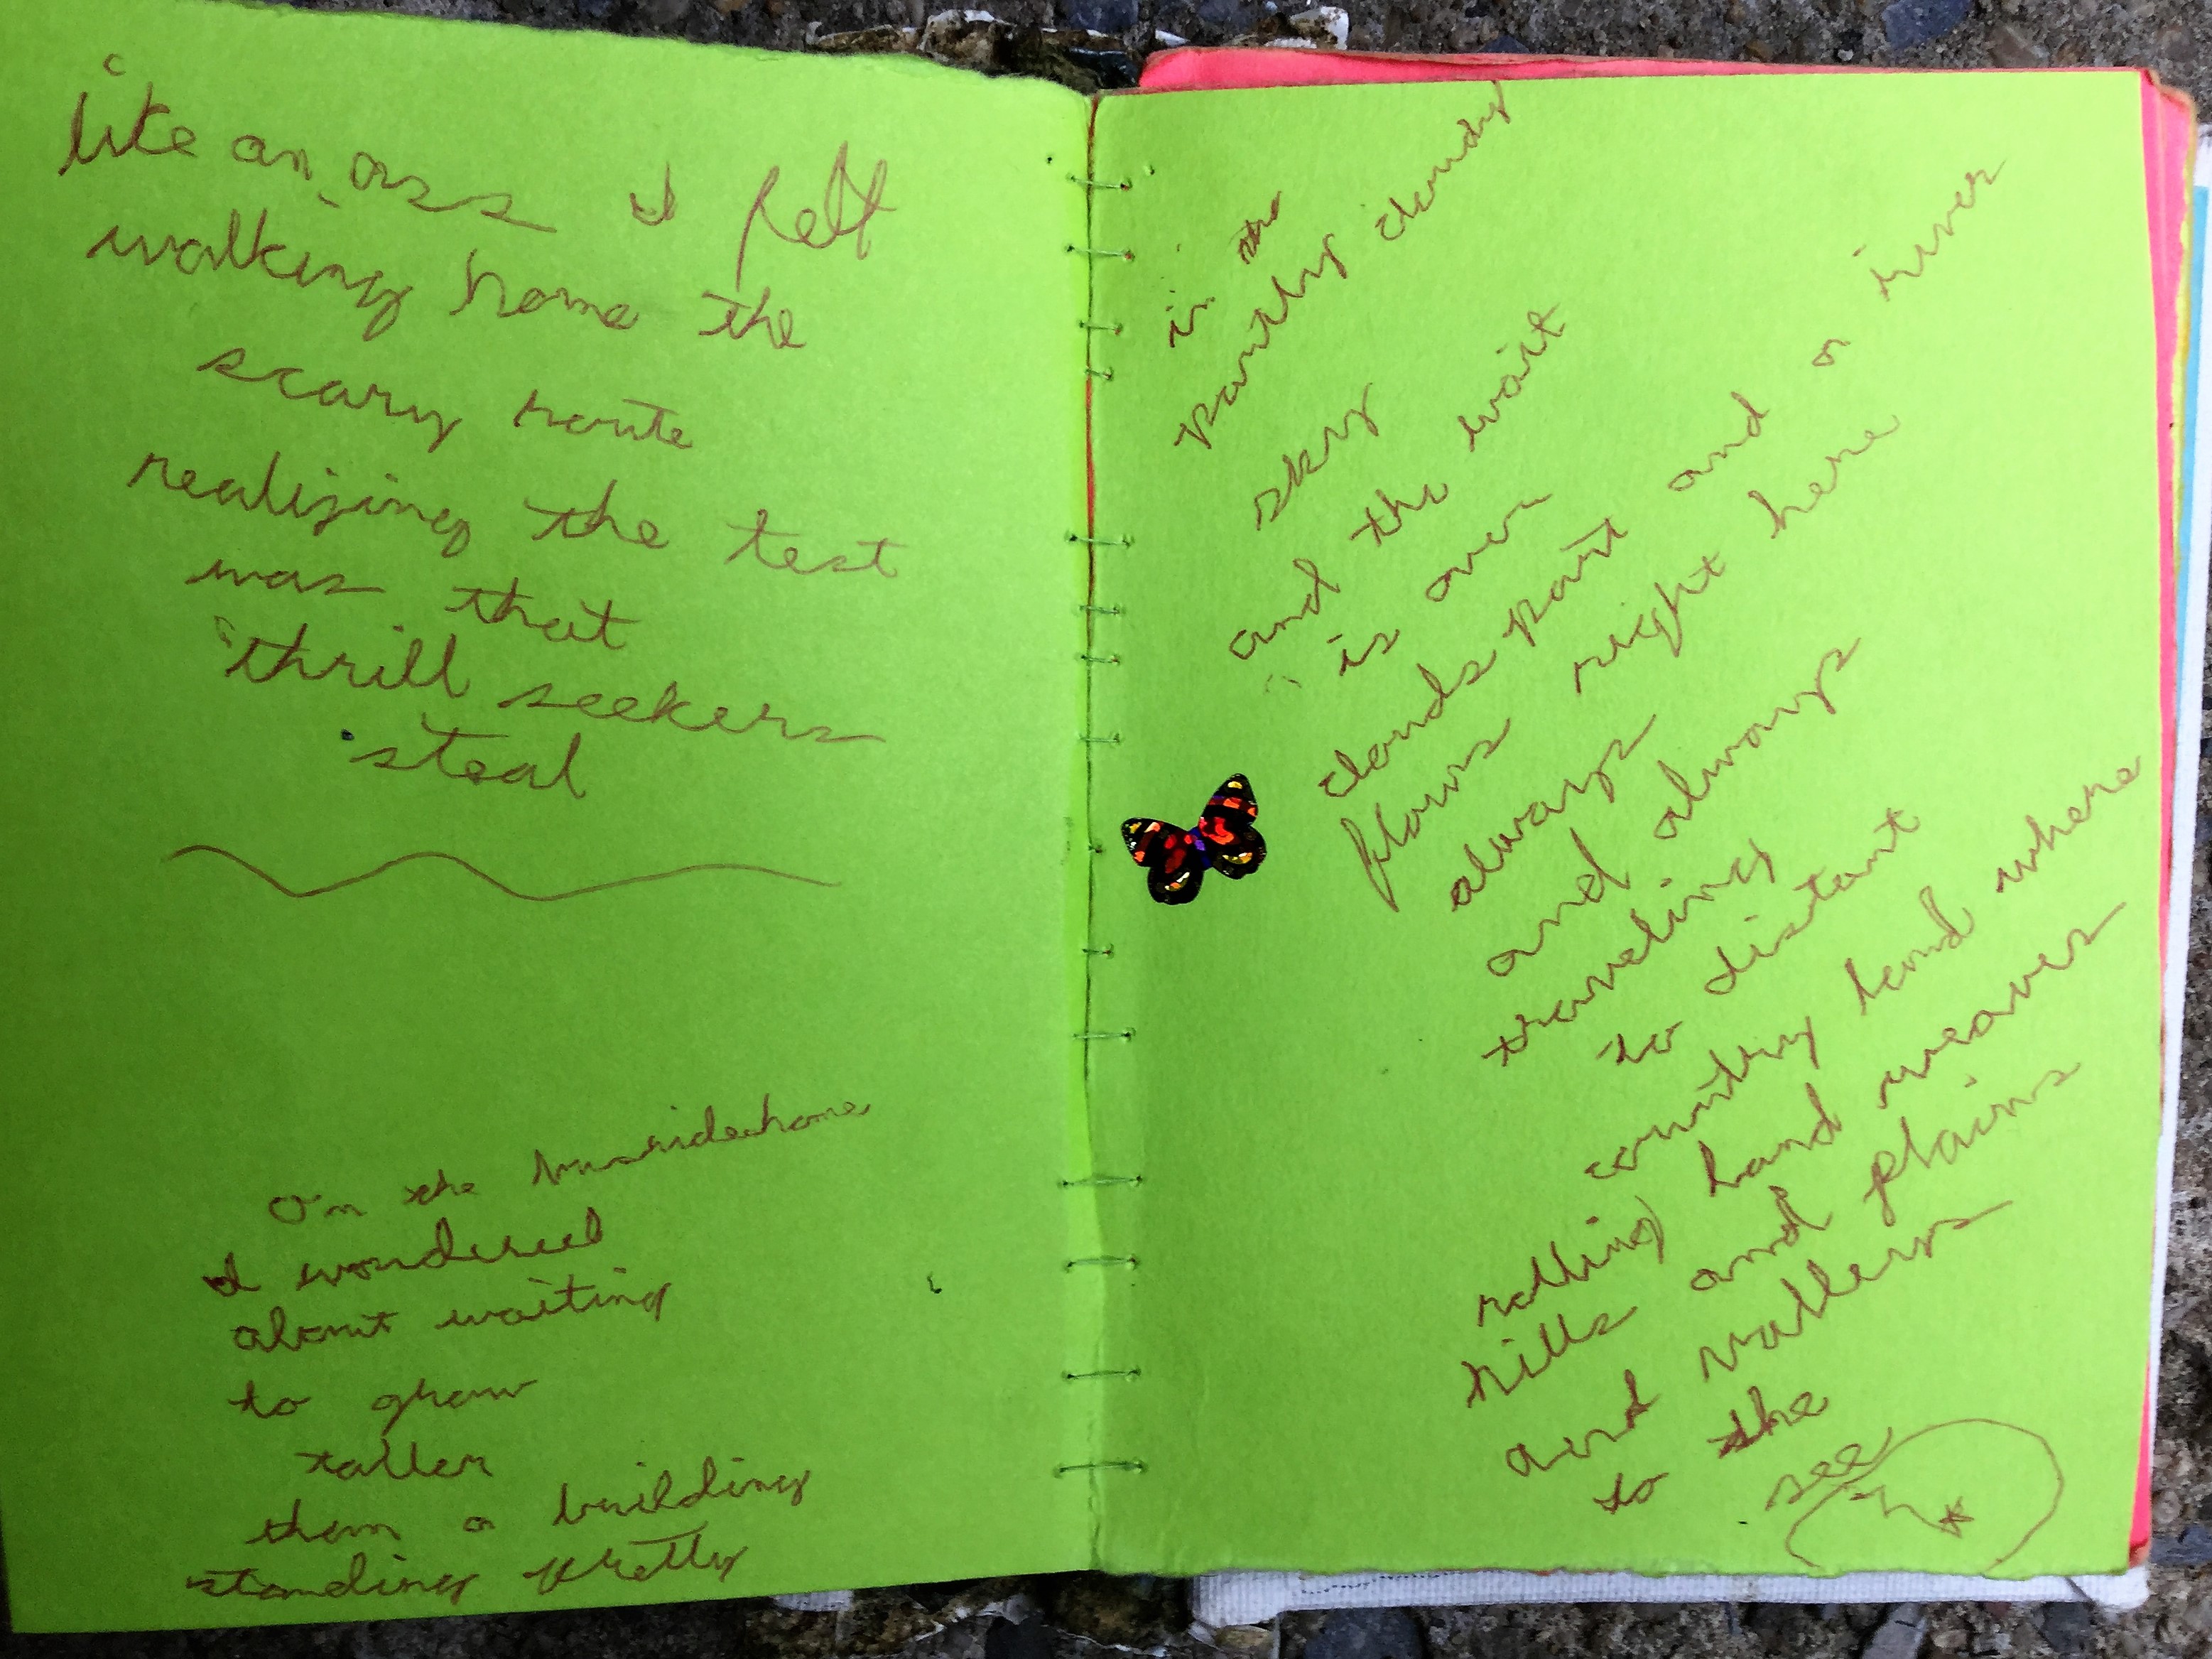 like an ass I felt
walking home the
scary route
realizing the test
was that
thrill seekers
steal
On the bus ride home
I wondered
about waiting
to grow
taller
then a building
standing pretty
in the
partly cloudy
sky
and the wait
is over
clouds part and a river
flows right here
always
and always
traveling
to distant
country land where
rolling hand weaves
hills and plains
and valleys
to the
see